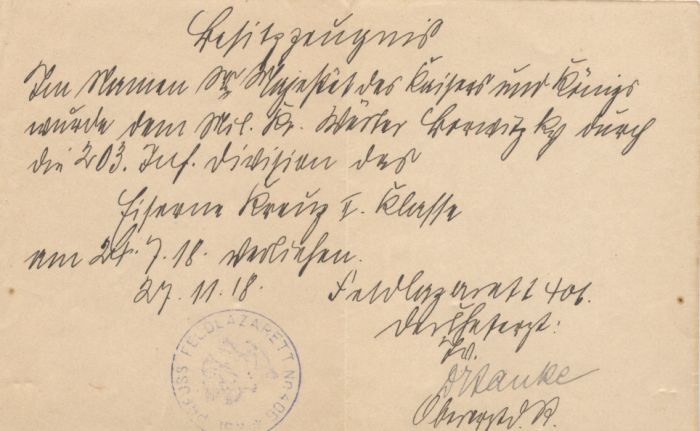 Besitzzeugnis
Im Namen Sr. Majestät des Kaisers und Königs
wurde dem Mil. Kr. Wärter Borwitzky durch
die 203. Inf. Division das
Eiserne Kreuz II. Klasse
am 7.18. verliehen.
27.11.18. Feldlazarett 406.
Der Chefarzt:
Dr Hanke
Oberarzt d. R.
PREUSS. FELDLAZARETT Nr. 406